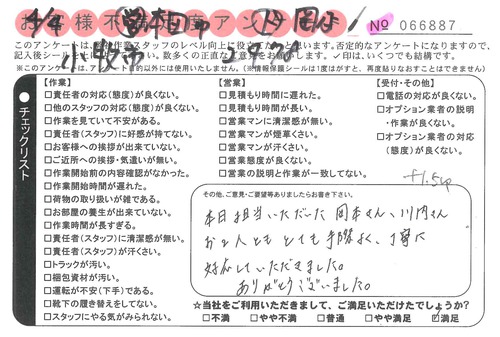 お客様不満足度アンケート
No 066887
このアンケートは
否定的なアンケートになりますので、
数多くの正直な
✓印は、いくつでも結構です。
※このアンケートは、
目的以外には使用いたしません。（※情報保護シールは1度はがすと、再度貼りなおすことはできません）
小牧市
チェックリスト
【作業】
□責任者の対応(態度)が良くない。
□他のスタッフの対応(態度)が良くない。
□作業を見ていて不安がある。
□責任者(スタッフ)に好感が持てない。
□お客様への挨拶が出来ていない。
□ご近所への挨拶・気遣いが無い。
□作業開始前の内容確認がなかった。
□作業開始時間が遅れた。
□荷物の取り扱いが雑である。
□お部屋の養生が出来ていない。
□作業時間が長すぎる。
□責任者(スタッフ)に清潔感が無い。
□責任者(スタッフ)が汗くさい。
□トラックが汚い。
□梱包資材が汚い。
□運転が不安(下手)である。
□靴下の履き替えをしてない。
□スタッフにやる気がみられない。
【営業】
□見積もり時間に遅れた。
□見積もり時間が長い。
□営業マンに清潔感が無い。
□営業マンが煙草くさい。
□営業マンが汗くさい。
□営業態度が良くない。
□営業の説明と作業が一致してない。
【受付・その他】
□電話の対応が良くない。
□オプション業者の説明
・作業が良くない。
□オプション業者の対応
(態度)が良くない。
+1.5up
その他、ご意見・ご要望等ありましたらお書き下さい。
本日担当いただいた岡本さん、川内さん
お2人ともとても手際よく、丁寧に
対応していただきました。
ありがとうございました。
☆当社をご利用いただきまして、ご満足いただけたでしょうか?
□不満 □やや不満 □普通 □やや満足 ☑満足